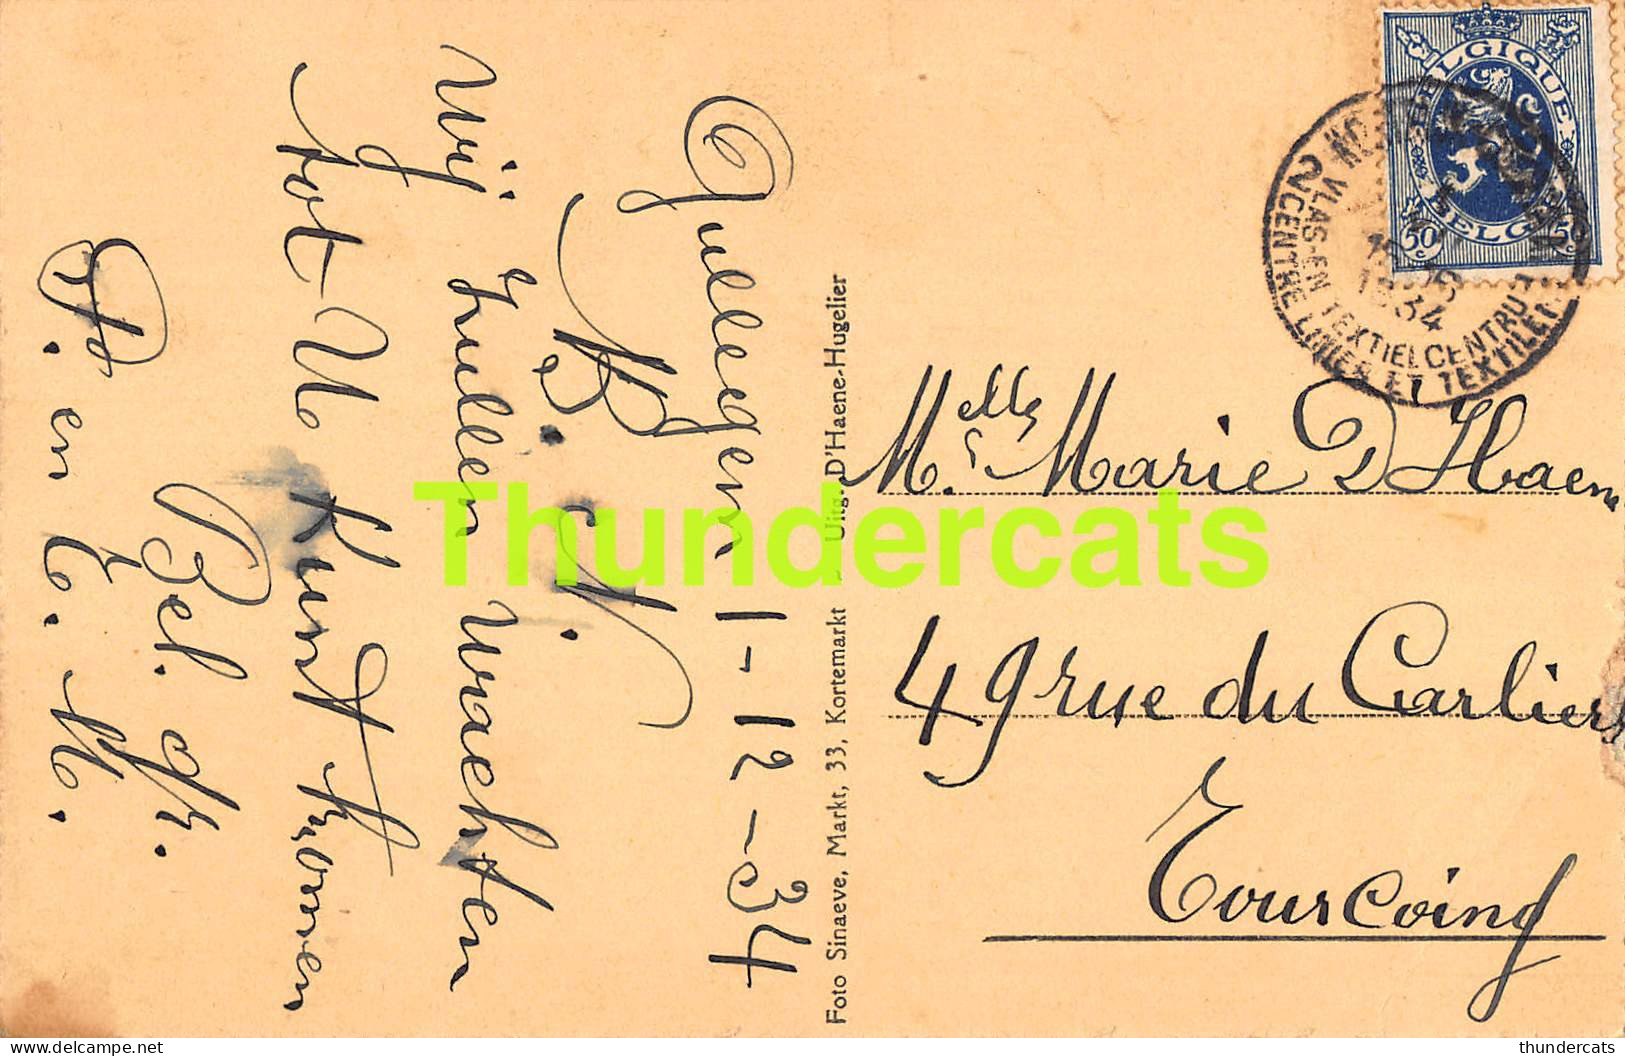 Gullegem 1-12-34
B. c. N.
Wij zullen wachten
tot U kunt komen
Bel. gr.
A. en C. M.
Foto Sinaeve, Markt, 33, Kortemarkt - Uitg. D'Haene-Hugelier
BELGIQUE
BELGIË
50c 50c
2 VLAS-EN TEXTIELCENTRUM
CENTRE LINIER ET TEXTILE
1934
Melle Marie D'Haene
49 rue du Carlier
Tourcoing
Thundercats
delcampe.net
thundercats